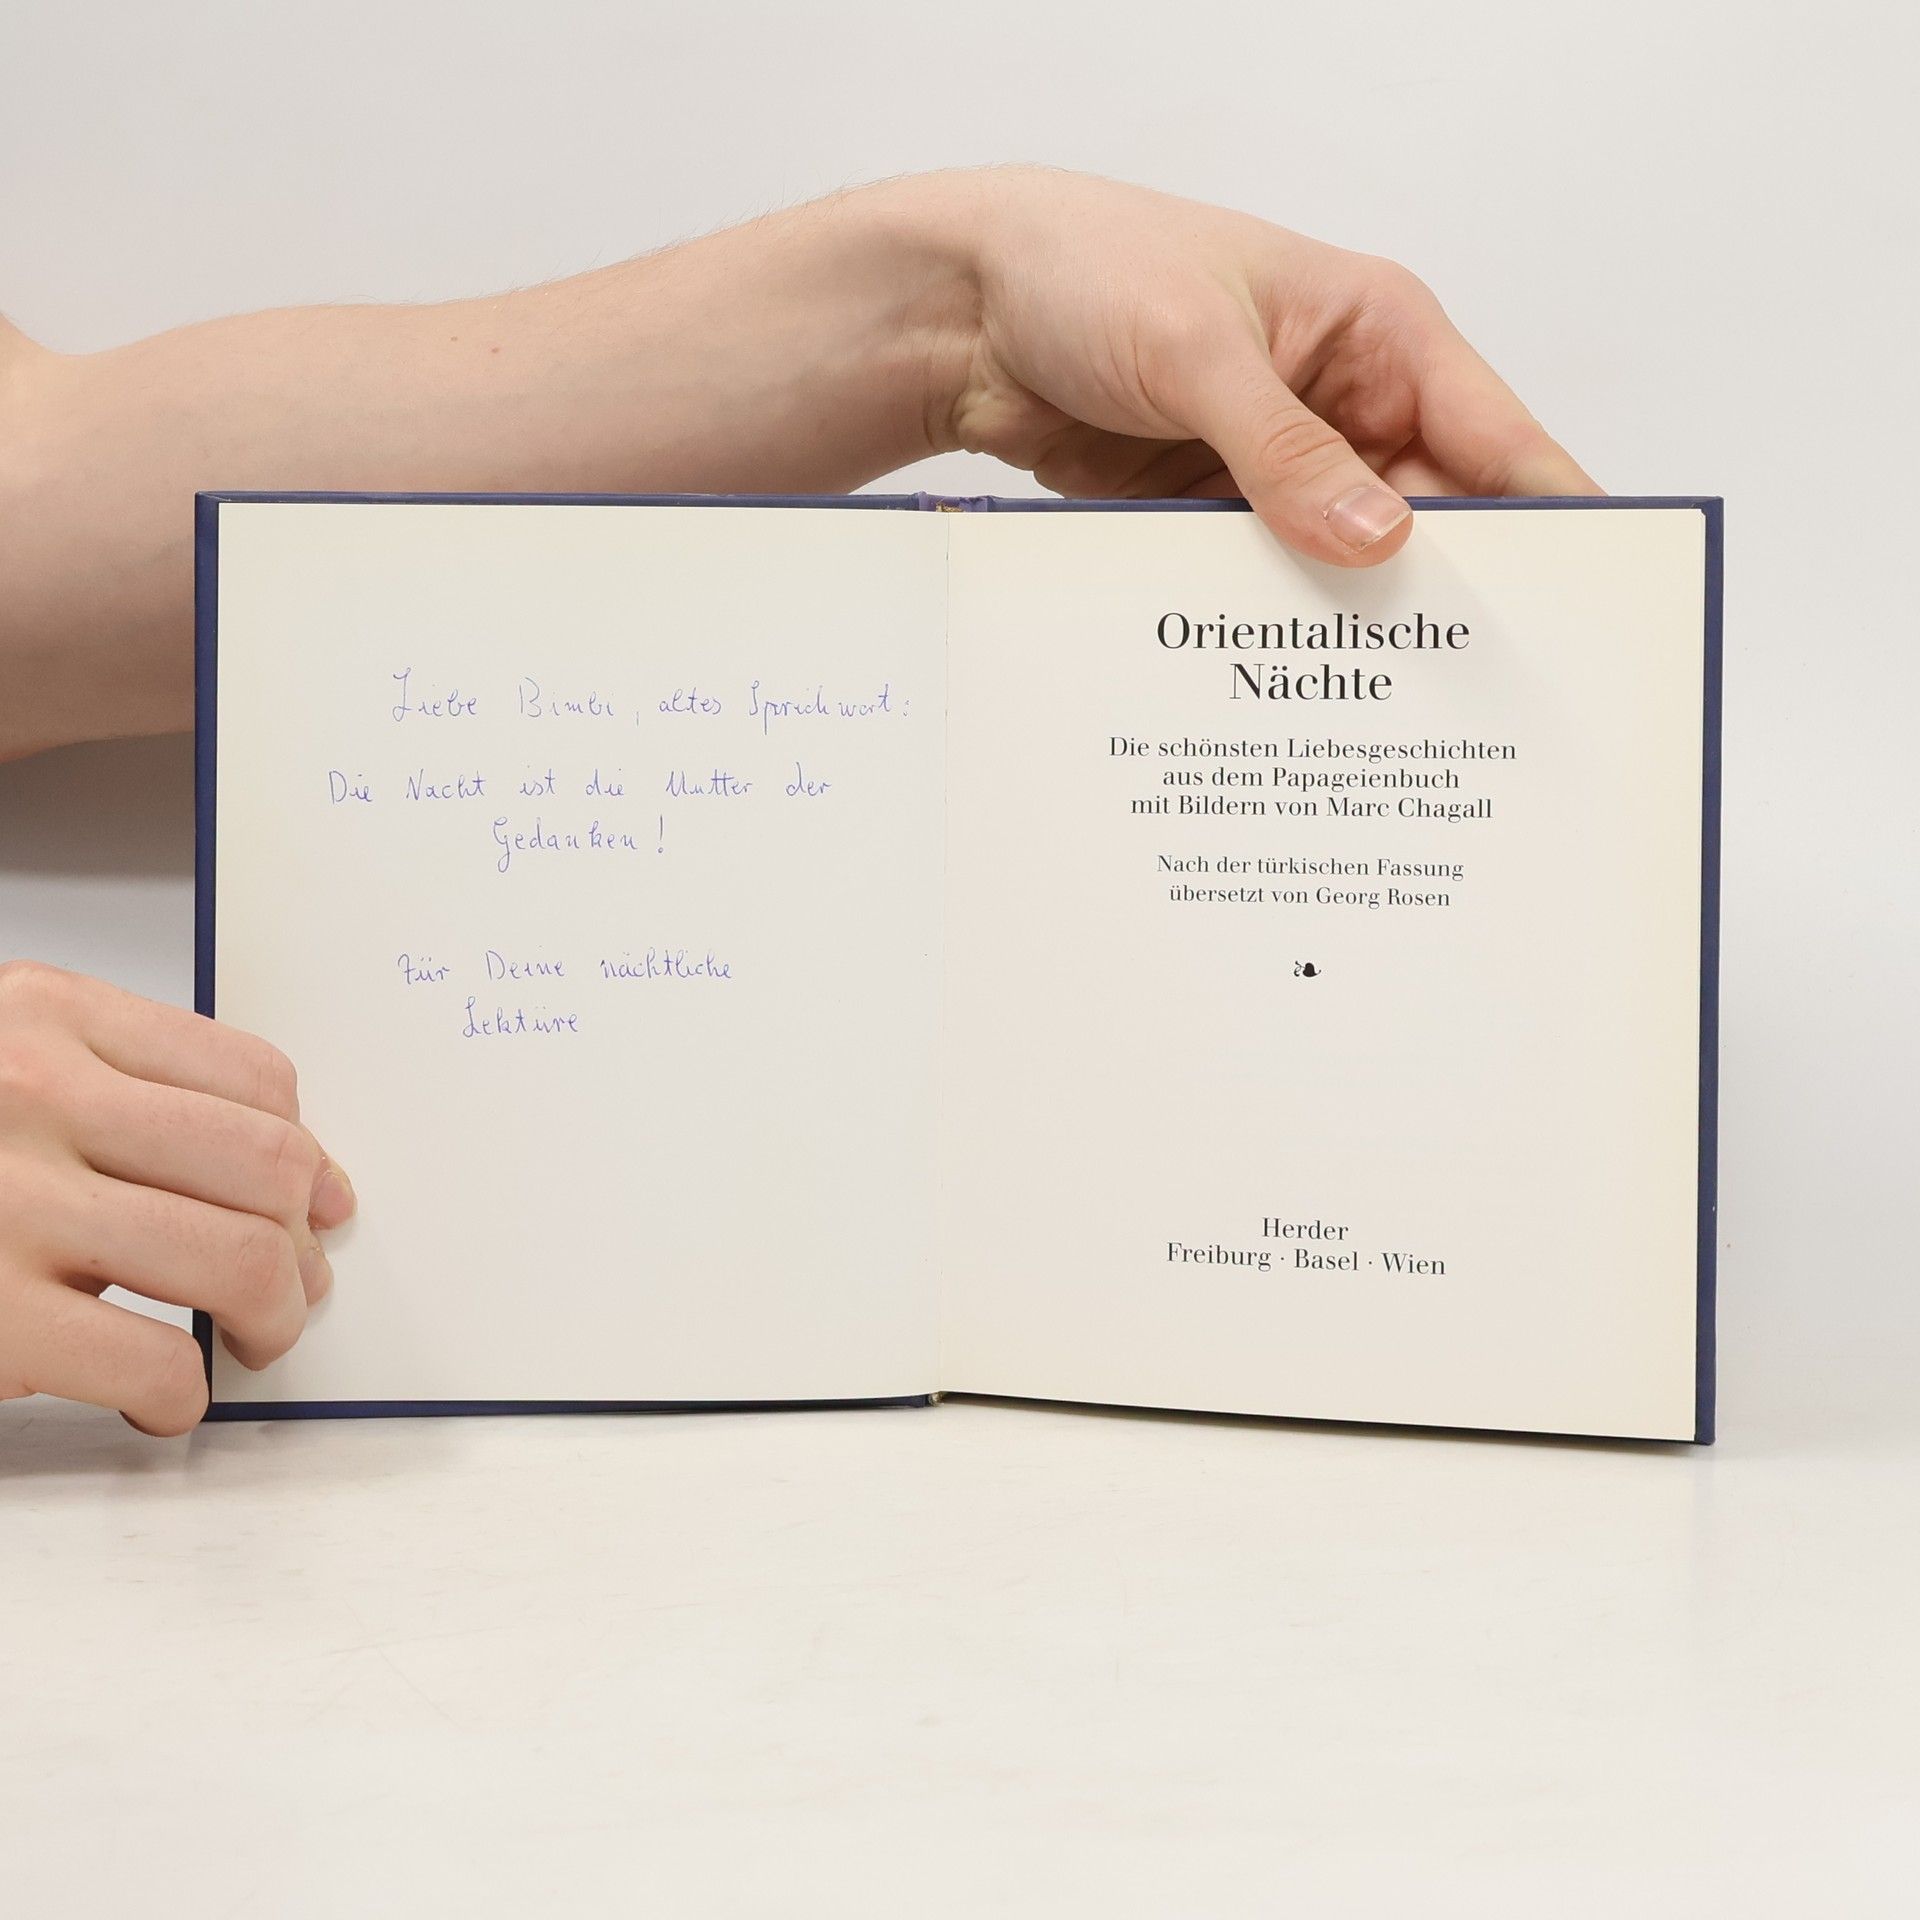 Liebe Bimbi, altes Sprichwort:
Die Nacht ist die Mutter der
Gedanken!
Für Deine nächtliche
Lektüre
Orientalische
Nächte
Die schönsten Liebesgeschichten
aus dem Papageienbuch
mit Bildern von Marc Chagall
Nach der türkischen Fassung
übersetzt von Georg Rosen
Herder
Freiburg · Basel · Wien